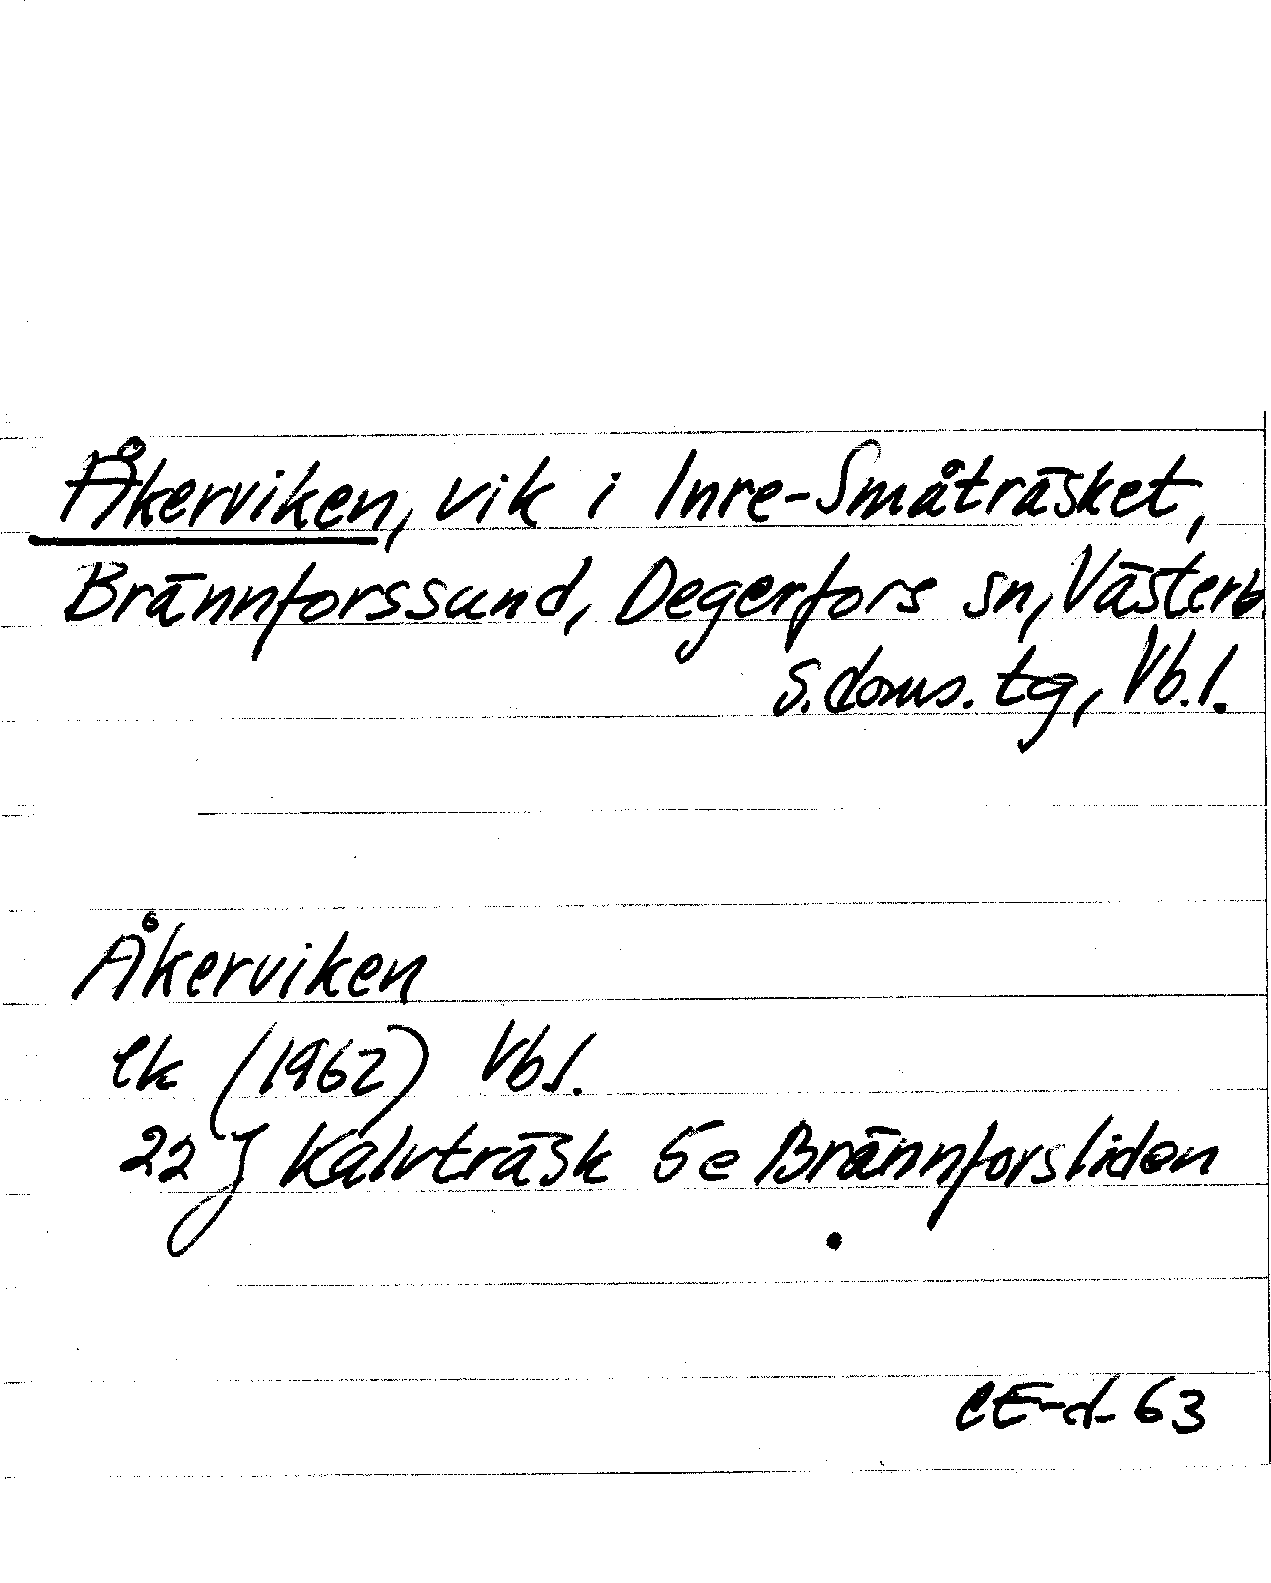 Åkerviken, vik i Inre-Småträsket,
Brännforssund, Degerfors sn, Västerb.
s. doms. tg, Vb. l.
Åkerviken
ek (1962) Vbl.
22 J Kalvträsk 5e Brännforsliden
CE-d- 63